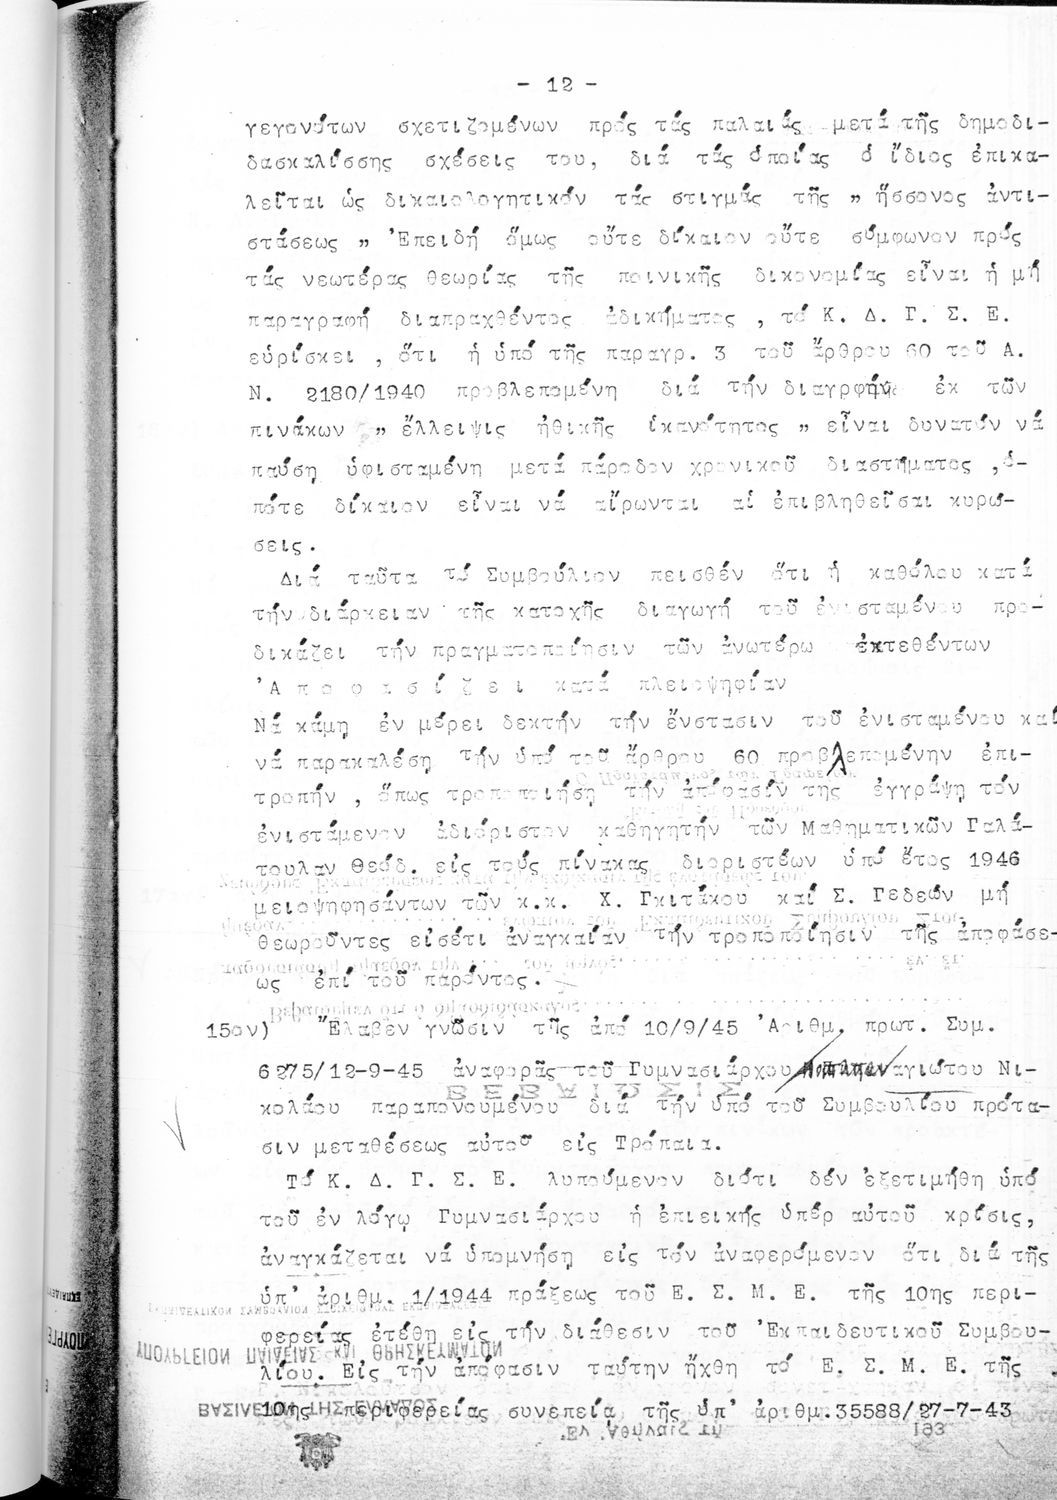 - 12 -
γεγονότων σχετιζομένων πρός τάς παλαιάς μετά τῆς δημοδι-
δασκαλίσσης σχέσεις του, διά τάς ὁποίας ὁ ἴδιος ἐπικα-
λεῖται ὡς δικαιολογητικόν τάς στιγμάς τῆς " ἥσσονος ἀντι-
στάσεως " Ἐπειδή ὅμως οὔτε δίκαιον οὔτε σύμφωνον πρός
τάς νεωτέρας θεωρίας τῆς ποινικῆς δικονομίας εἶναι ἡ μή
παραγραφή διαπραχθέντος ἀδικήματος , τό Κ. Δ. Γ. Σ. Ε.
εὑρίσκει , ὅτι ἡ ὑπό τῆς παραγρ. 3 τοῦ ἄρθρου 60 τοῦ Α.
Ν. 2180/1940 προβλεπομένη διά τήν διαγρφήν ἐκ τῶν
πινάκων " ἔλλειψις ἠθικῆς ἱκανότητος " εἶναι δυνατόν νά
παύση ὑφισταμένη μετά πάροδον χρονικοῦ διαστήματος ,ὁ-
πότε δίκαιον εἶναι νά αἴρωνται αἱ ἐπιβληθεῖσαι κυρώ-
σεις.
Διά ταῦτα τό Συμβούλιον πεισθέν ὅτι ἡ καθόλου κατά
τήν διάρκειαν τῆς κατοχῆς διαγωγή τοῦ ἐνισταμένου προ-
δικάζει τήν πραγματοποίησιν τῶν ἀνωτέρω ἐκτεθέντων
Ἀ π ο φ α σ ί ζ ε ι κατά πλειοψηφίαν
Νά κάμη ἐν μέρει δεκτήν τήν ἔνστασιν τοῦ ἐνισταμένου καί
νά παρακαλέση τήν ὑπό τοῦ ἄρθρου 60 προβλεπομένην ἐπι-
τροπήν , ὅπως τροποποιήση τήν ἀπόφασίν της ἐγγράψη τόν
ἐνιστάμενον ἀδιόριστον καθηγητήν τῶν Μαθηματικῶν Γαλά-
τουλαν Θεόδ. εἰς τούς πίνακας διοριστέων ὑπό ἔτος 1946
μειοψηφησάντων τῶν κ.κ. Χ. Γκιτάκου καί Σ. Γεδεών μή
θεωροῦντες εἰσέτι ἀναγκαίαν τήν τροποποίησιν τῆς ἀποφάσε-
ως ἐπί τοῦ παρόντος.
15ον) Ἔλαβεν γνῶσιν τῆς ἀπό 10/9/45 Ἀριθμ. πρωτ. Συμ.
6275/12-9-45 ἀναφορᾶς τοῦ Γυμνασιάρχου Παναγιώτου Νι-
κολάου παραπονουμένου διά τήν ὑπό τοῦ Συμβουλίου πρότα-
σιν μεταθέσεως αὐτοῦ εἰς Τρόπαια.
Τό Κ. Δ. Γ. Σ. Ε. λυπούμενον διότι δέν ἐξετιμήθη ὑπό
τοῦ ἐν λόγῳ Γυμνασιάρχου ἡ ἐπιεικής ὑπέρ αὐτοῦ κρίσις,
ἀναγκάζεται νά ὑπομνήση εἰς τόν ἀναφερόμενον ὅτι διά τῆς
ὑπ' ἀριθμ. 1/1944 πράξεως τοῦ Ε. Σ. Μ. Ε. τῆς 10ης περι-
φερείας ἐτέθη εἰς τήν διάθεσιν τοῦ Ἐκπαιδευτικοῦ Συμβου-
λίου. Εἰς τήν ἀπόφασιν ταύτην ἤχθη τό Ε. Σ. Μ. Ε. τῆς
10ης περιφερείας συνεπεία τῆς ὑπ' ἀριθμ.35588/27-7-43